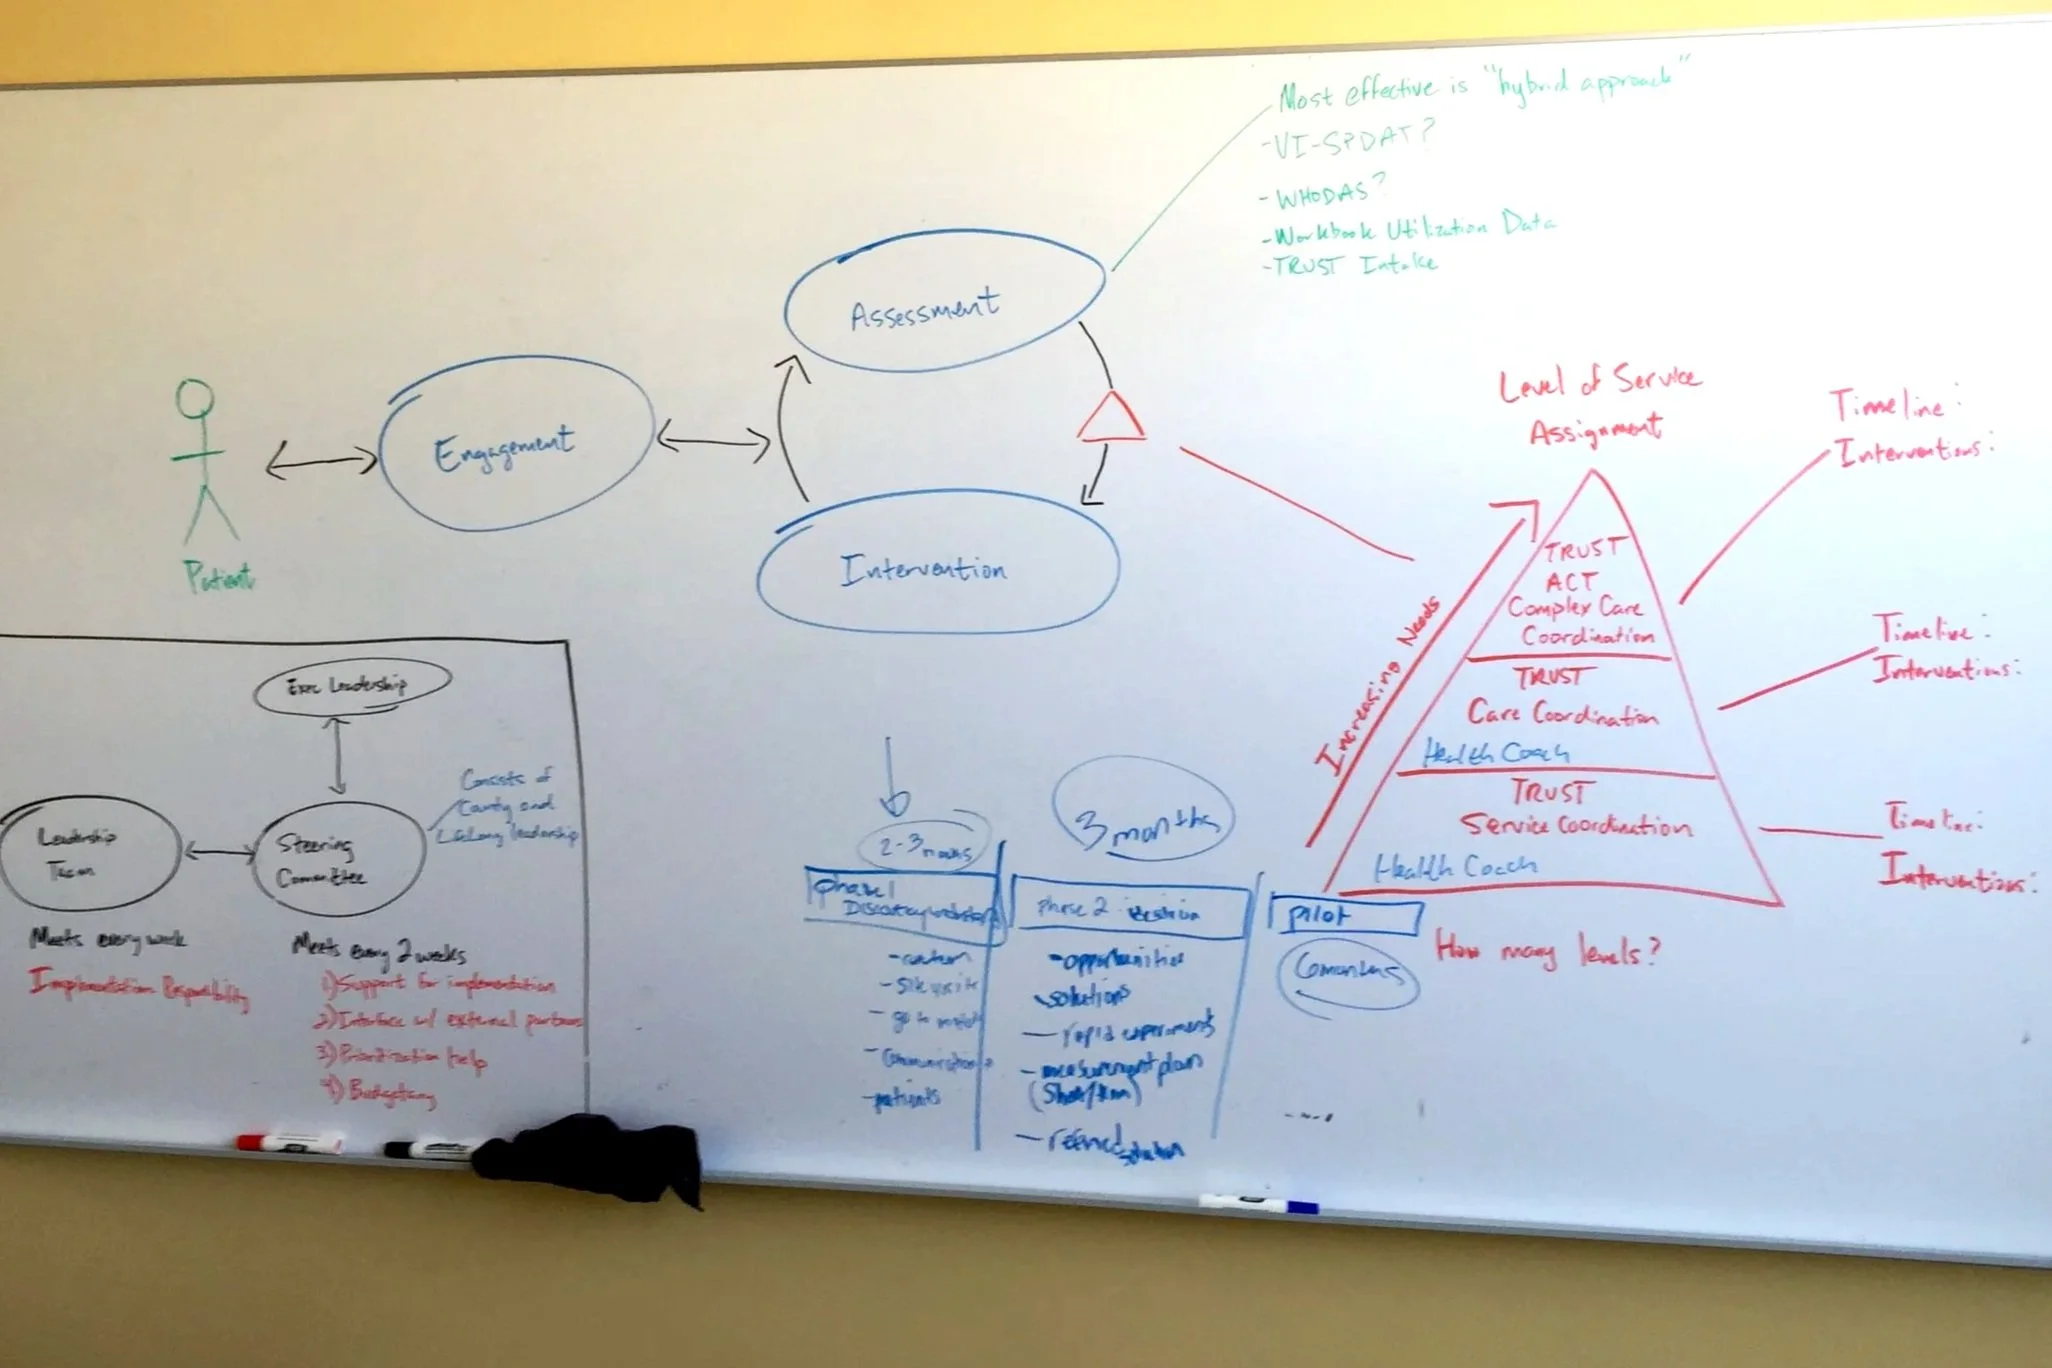 Most effective is "hybrid approach"
-VI-SPDAT?
-WHODAS?
-Workbook Utilization Data
-TRUST Intake
Assessment
Engagement
Intervention
Patient
Level of Service
Assignment
Increasing Needs
TRUST
ACT
Complex Care
Coordination
TRUST
Care Coordination
Health Coach
TRUST
Service Coordination
Health Coach
How many levels?
Timeline:
Interventions:
Timeline:
Interventions:
Timeline:
Interventions:
Exec Leadership
Leadership
Team
Meets every week
Implementation Responsibility
Steering
Committee
Consists of
County and
LifeLong leadership
Meets every 2 weeks
1) Support for implementation
2) Interface w/ external partners
3) Prioritization help
4) Budgetary
2-3 months
phase 1
Discovery
- site visits
- go to
- communications
- patients
3 months
Phase 2
- opportunities
solutions
- rapid experiments
- measurement plan
- refined solution
pilot
6 months